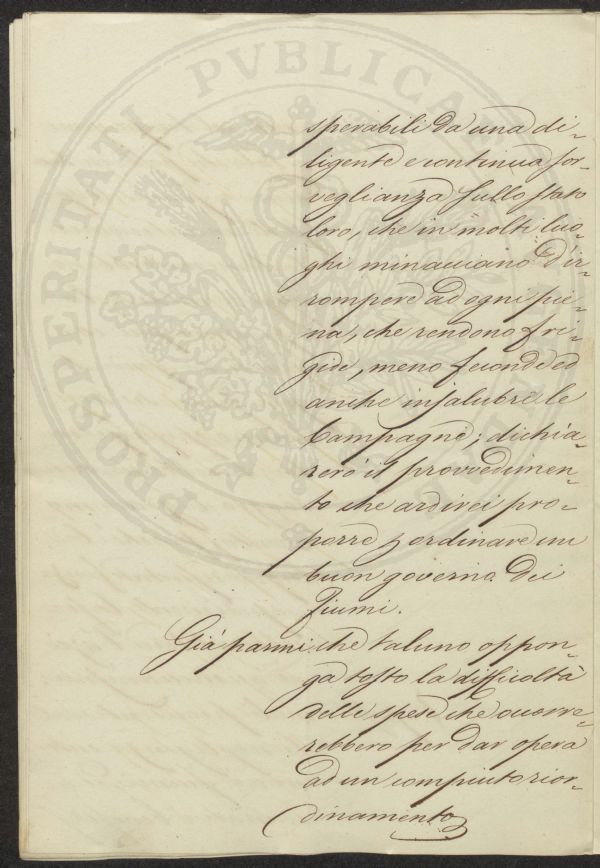 sperabili da una di-
ligente e continua sor-
veglianza sullo stato
loro, che in molti luo-
ghi minacciano d'ir-
rompere ad ogni pie-
na, che rendono fri-
gide, meno feconde ed
anche insalubre le
Campagne; dichia-
rerò il provvedimen-
to che ardirei pro-
porre p ordinare un
buon governo dei
fiumi.
Già parmi che taluno oppon-
ga tosto la difficoltà
delle spese che occorre-
rebbero per dar opera
ad un compiuto rior-
dinamento
PROSPERITATI PVBLICAE